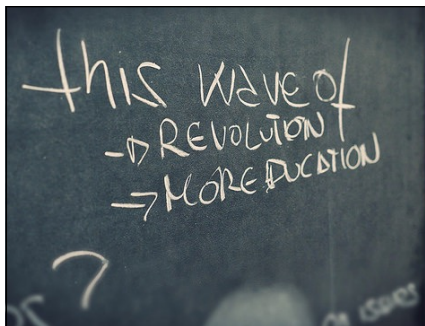 this wave of
→ REVOLUTION
→ MORE EDUCATION
?